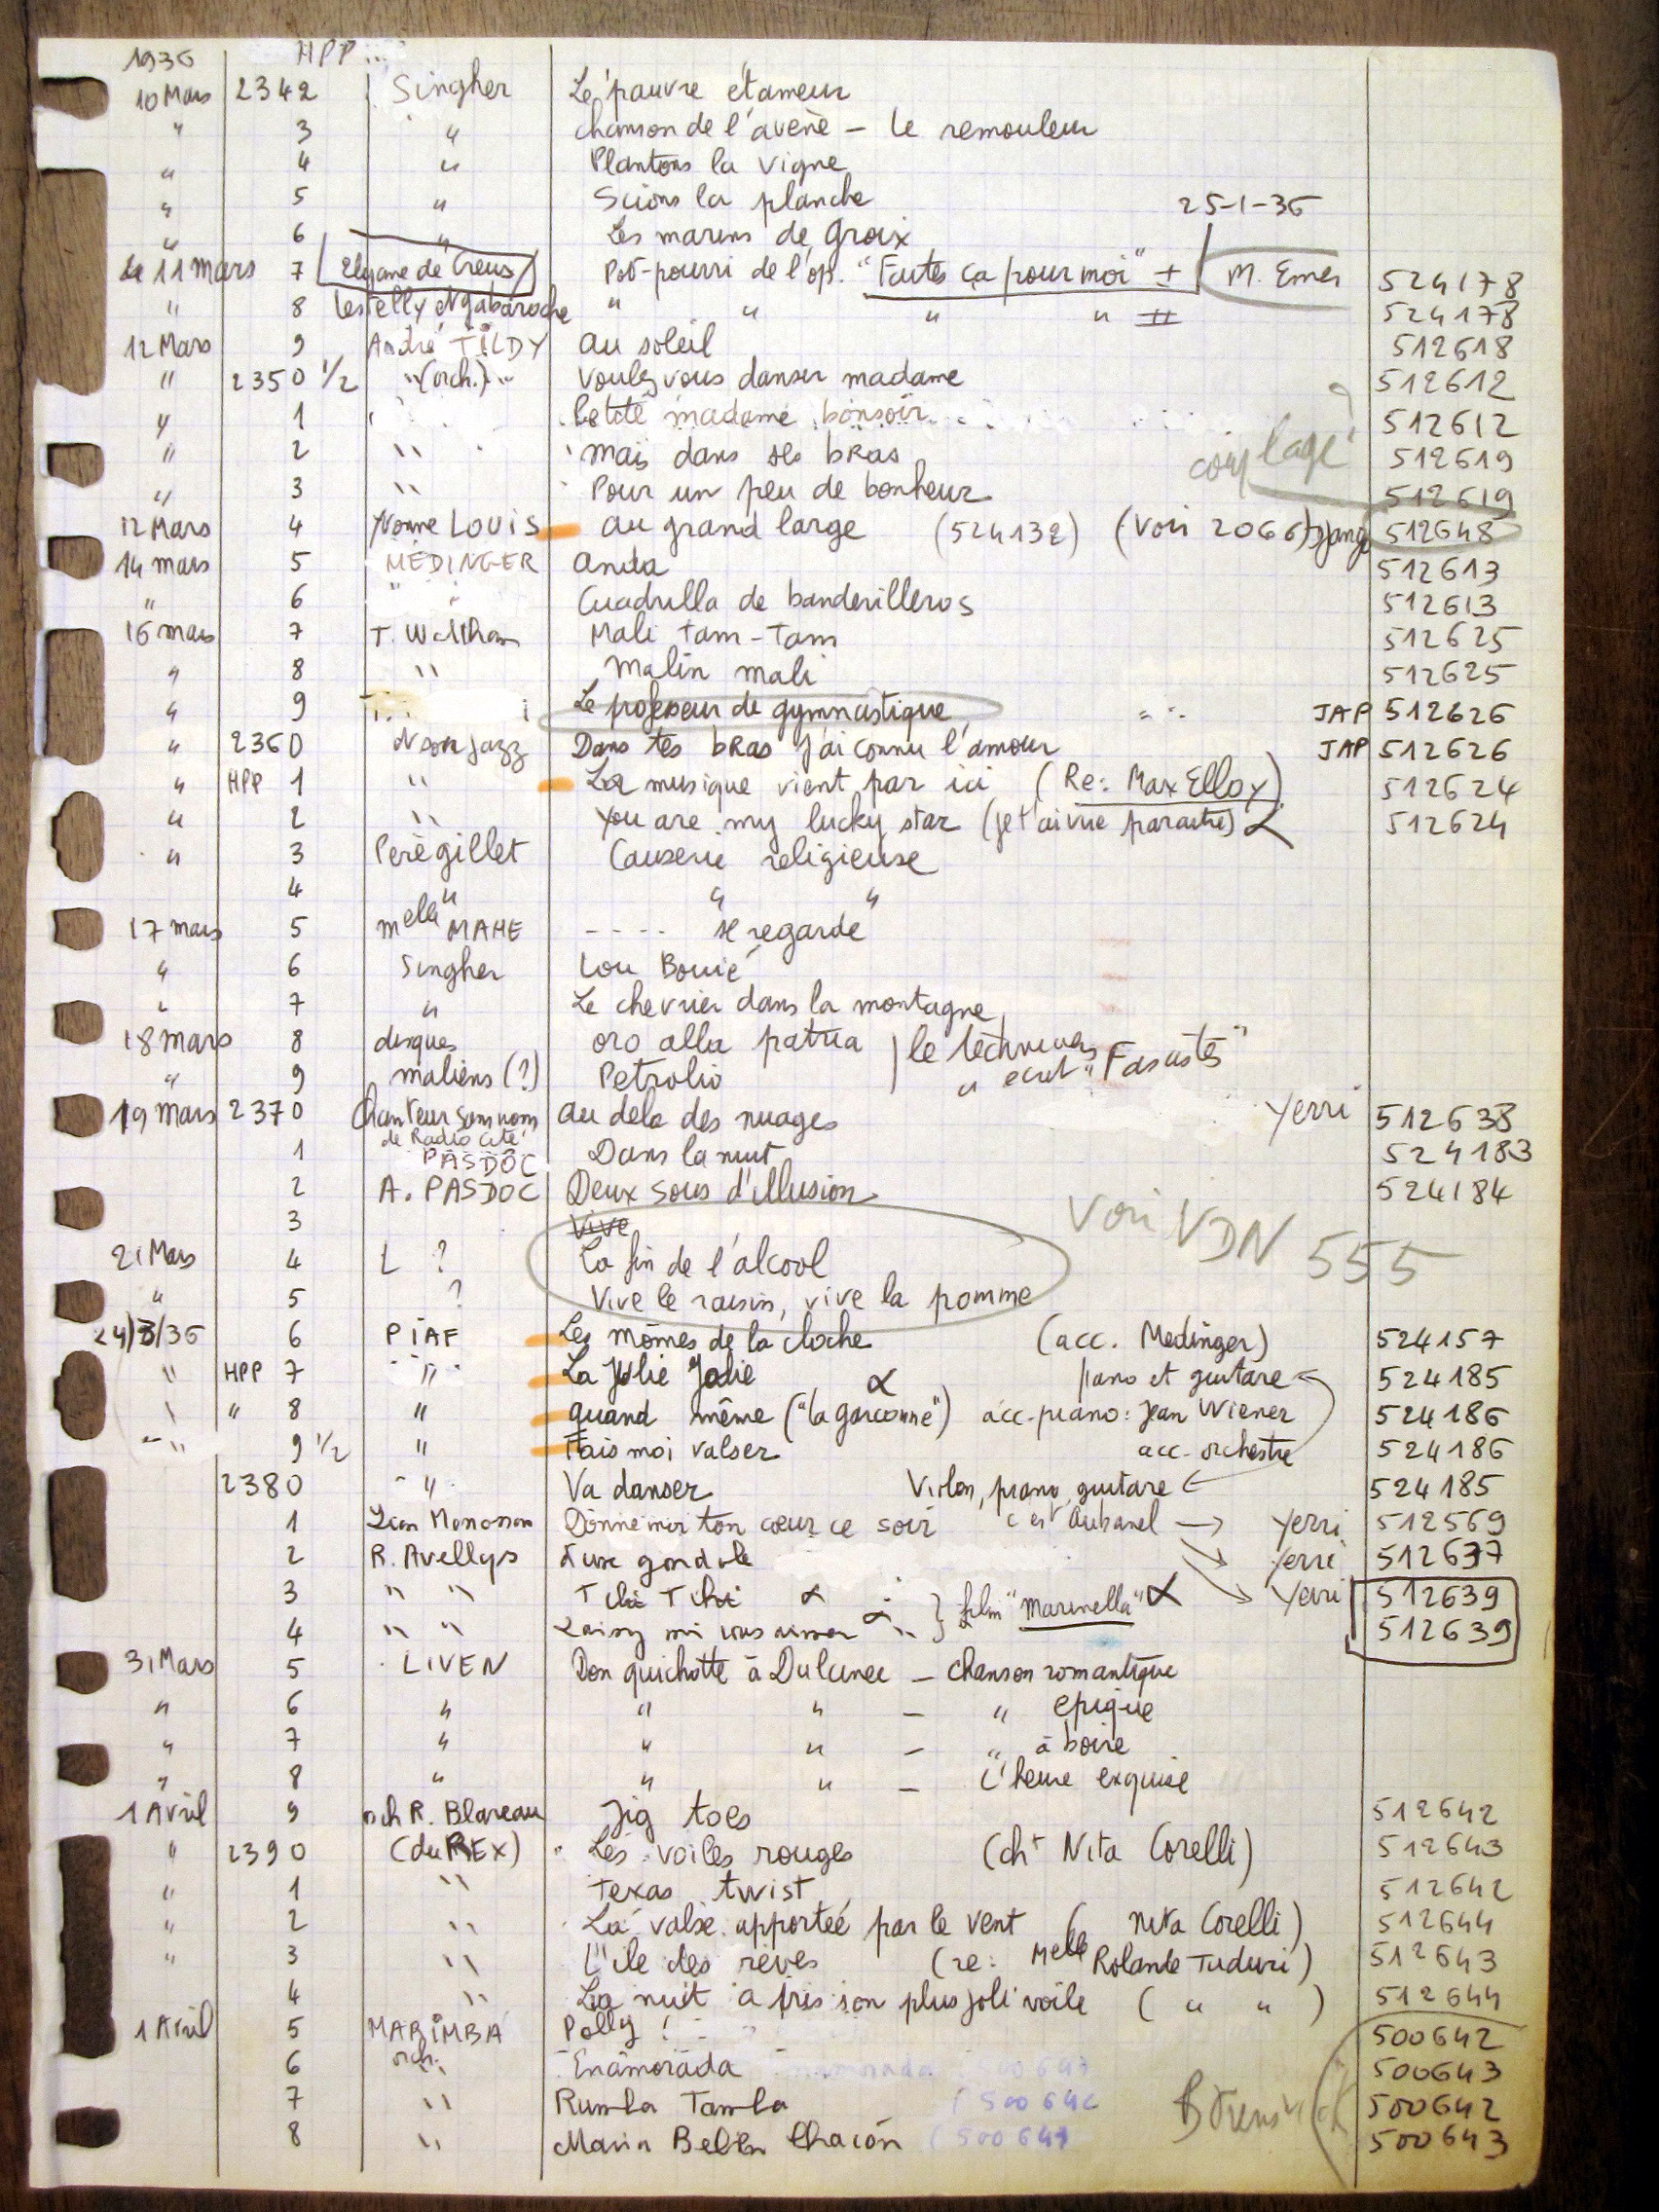 1936 HPP...
10 Mars 2342 Singher Le pauvre étameur
" 3 " chanson de l'avène - le remouleur
" 4 " Plantons la vigne
" 5 " Scions la planche
25-1-36
" 6 " Les marins de groix
le 11 mars 7 Elyane de Creus Pot-pourri de l'op. "Faites ça pour moi" I M. Emer 524178
" 8 Lestelly et gabaroche " " " " II 524178
12 Mars 9 André TILDY Au soleil 512618
" 2350 1/2 "(orch.)" Voulez vous danser madame 512612
" 1 Petite madame bonsoir 512612
" 2 " mais dans ses bras 512619
couplage
" 3 " Pour un peu de bonheur 512619
12 Mars 4 Yvonne LOUIS au grand large (524132) (voir 2066) Django 512648
14 mars 5 MÉDINGER Anita 512613
" 6 " " Cuadrilla de banderilleros 512613
16 mars 7 T. Waltham Mali tam-tam 512625
" 8 " malin mali 512625
" 9 Le professeur de gymnastique " " JAP 512626
" 2360 et son jazz Dans tes bras j'ai connu l'amour JAP 512626
" HPP 1 " La musique vient par ici (Re: Max Elloy) 512624
" 2 " You are my lucky star (je t'ai vue paraitre) α 512624
" 3 Père gillet Causerie religieuse
4 " " "
17 mars 5 melle MAHE ---- se regarde
" 6 Singher Lou Bouié
" 7 " Le chevrier dans la montagne
18 mars 8 disques oro alla patria | le technicien
" 9 italiens (?) Petrolio | " écrit "Fasistes"
19 Mars 2370 Chanteur sans nom au dela des nuages Yerri 512638
de Radio cité
1 PASDOC Dans la nuit 524183
2 A. PASDOC Deux sous d'illusion 524184
3 Vive
voir VDN 555
21 Mars 4 L ? La fin de l'alcool
" 5 ? Vive le raisin, vive la pomme
24/3/36 6 PIAF Les mômes de la cloche (acc. Medinger) 524157
" HPP 7 " La Julie Jolie α piano et guitare 524185
" " 8 " quand même ("la garconne") acc. piano: Jean Wiener 524186
" 9 1/2 " Fais moi valser acc. orchestre 524186
2380 " Va danser Violon, piano, guitare 524185
1 Léon Monosson Donne moi ton cœur ce soir c'est Aubanel → Yerri 512569
2 R. Avellys d'une gondole Yerri 512637
3 " " Tchi Tchi α } film "Marinella" α → Yerri 512639
4 " " Laissez moi vous aimer α 512639
31 Mars 5 LIVEN Don quichotte à Dulcinee - chanson romantique
" 6 " " " - " epique
" 7 " " " - " à boire
" 8 " " " - L'heure exquise
1 Avril 9 orch R. Blareau Jig toes 512642
" 2390 (du REX) Les voiles rouges (cht Nita Corelli) 512643
" 1 " Texas twist 512642
" 2 " La valse apportée par le vent ( Nita Corelli) 512644
" 3 " L'ile des rêves (re: Melle Rolande Tuduri) 512643
4 " La nuit a pris son plus joli voile ( " " ) 512644
1 Avril 5 MARIMBA Polly ! 500642
6 orch. " Enamorada 500643
7 " Rumba Tamba (500642 500642
8 " Maria Belen Chacón (500641 500643